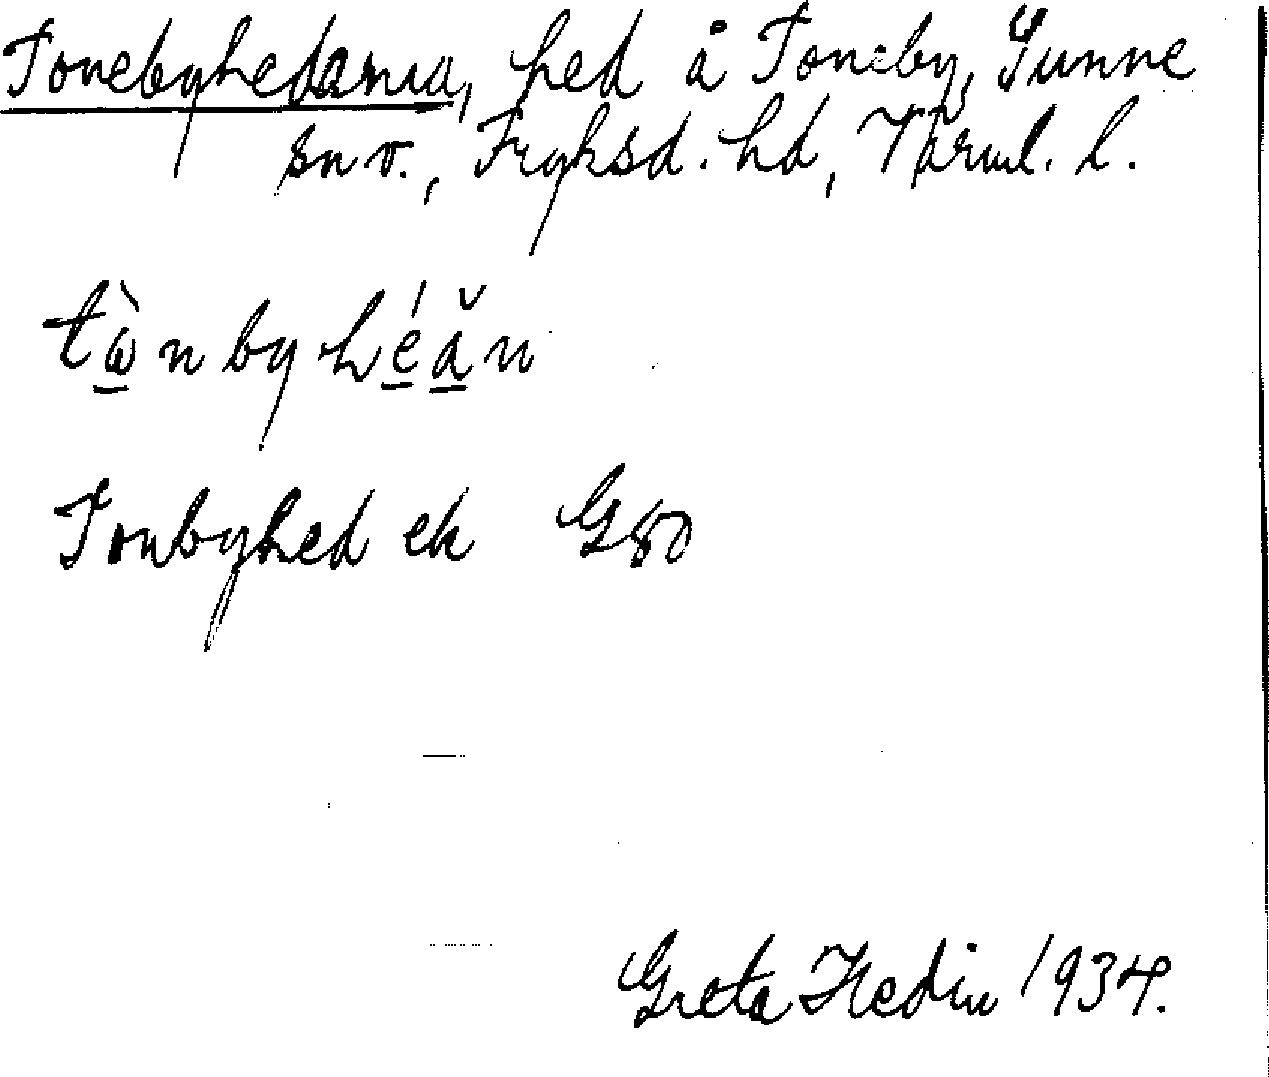 Tonebyhedarna, hed å Toneby, Sunne
sn v., Fryksd. hd, Värml. l.
tὼ̲nbyhé̲ă̲n
Tonbyhed ek G80
Greta Hedin 1934.